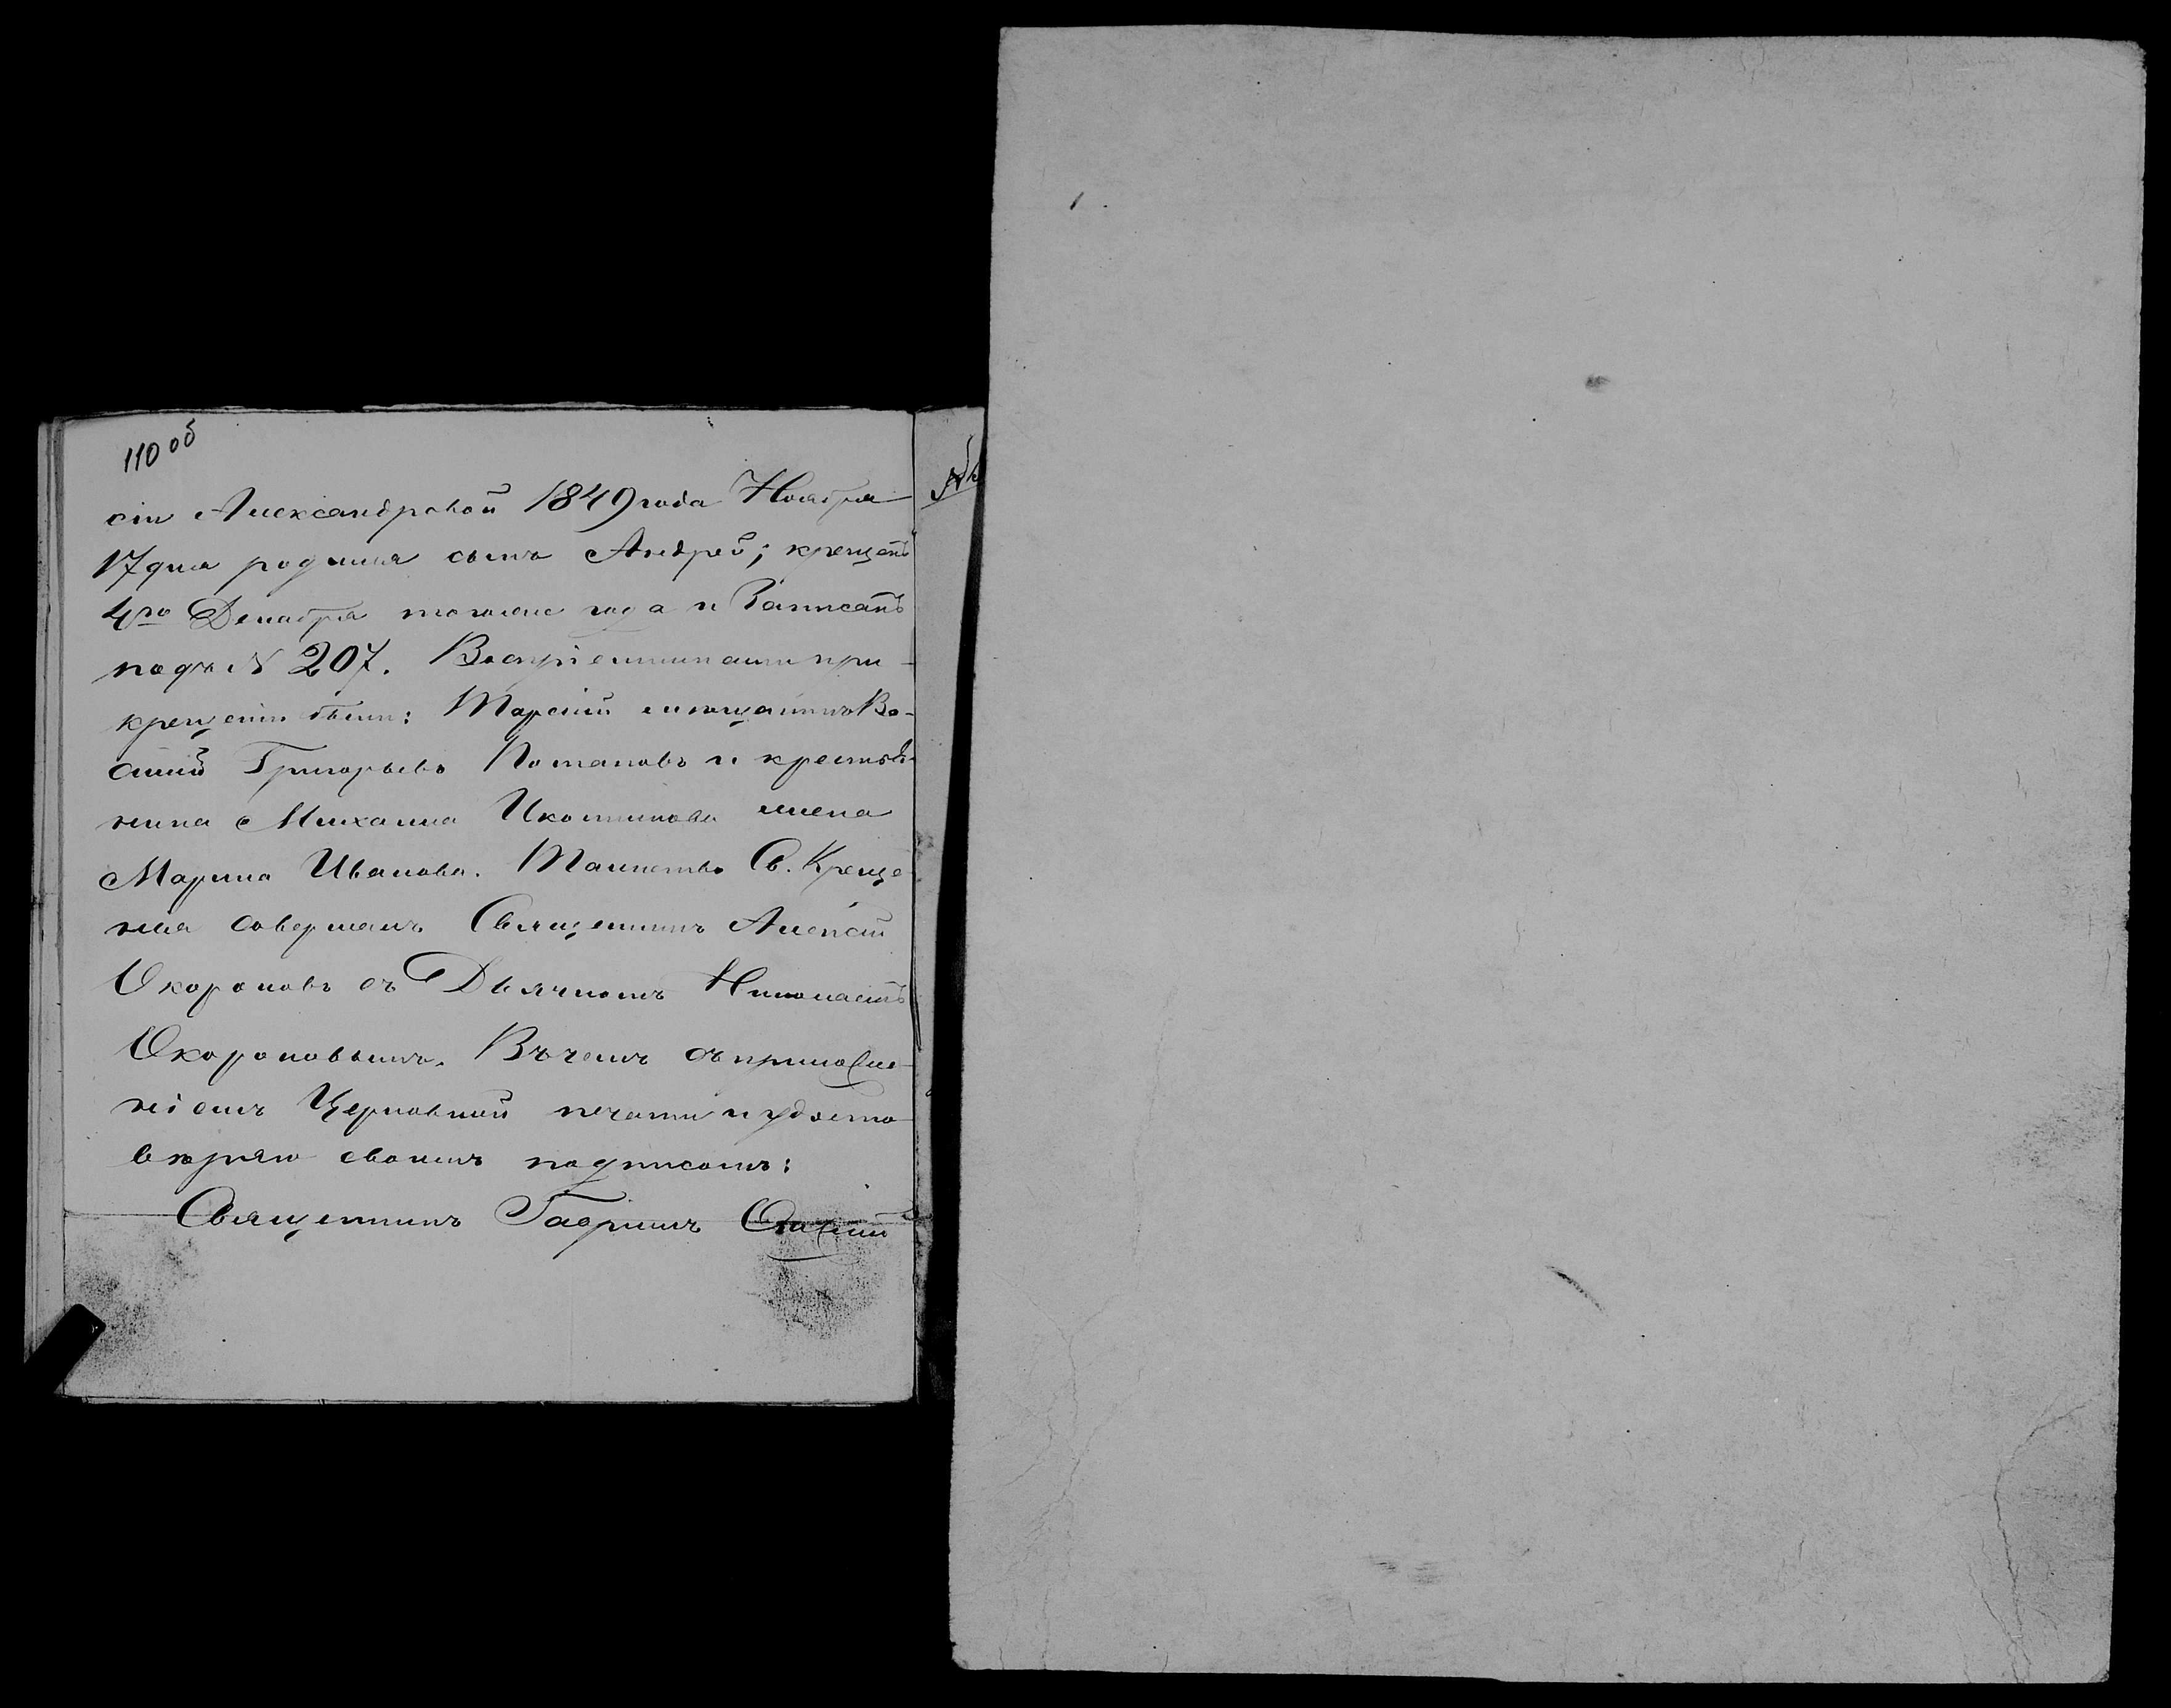 110 об
сіи Александровой 1849 года Ноября
17 дня родился сынъ Андрей; крещенъ
4го Декабря тогоже года и Записанъ
подъ № 207. Воспріемниками при
крещеніи были: Тарскій мѣщанинъ Ва-
силій Григорьевъ Потаповъ и крестья-
нина Михаила Икониикова жена
Марина Иванова. Таинство Св. Креще
нія совершалъ Священникъ Алексѣй
Скороповъ съ Дьячкомъ Николаемъ
Скороповымъ. Въ чемъ съ приложе-
ніемъ Церковной печати и удосто
вѣряю своимъ подписомъ:
Священникъ Гавріилъ